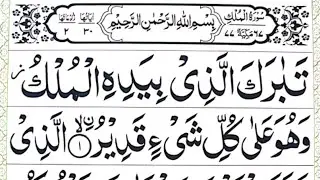 سُوْرَةُ الْمُلْكِ بِسْمِ اللّٰهِ الرَّحْمٰنِ الرَّحِيْمِ
تَبٰرَكَ الَّذِىْ بِيَدِهِ الْمُلْكُ
وَهُوَ عَلٰى كُلِّ شَىْءٍ قَدِيْرُۨ ۙ‏﴿۱﴾ الَّذِىْ